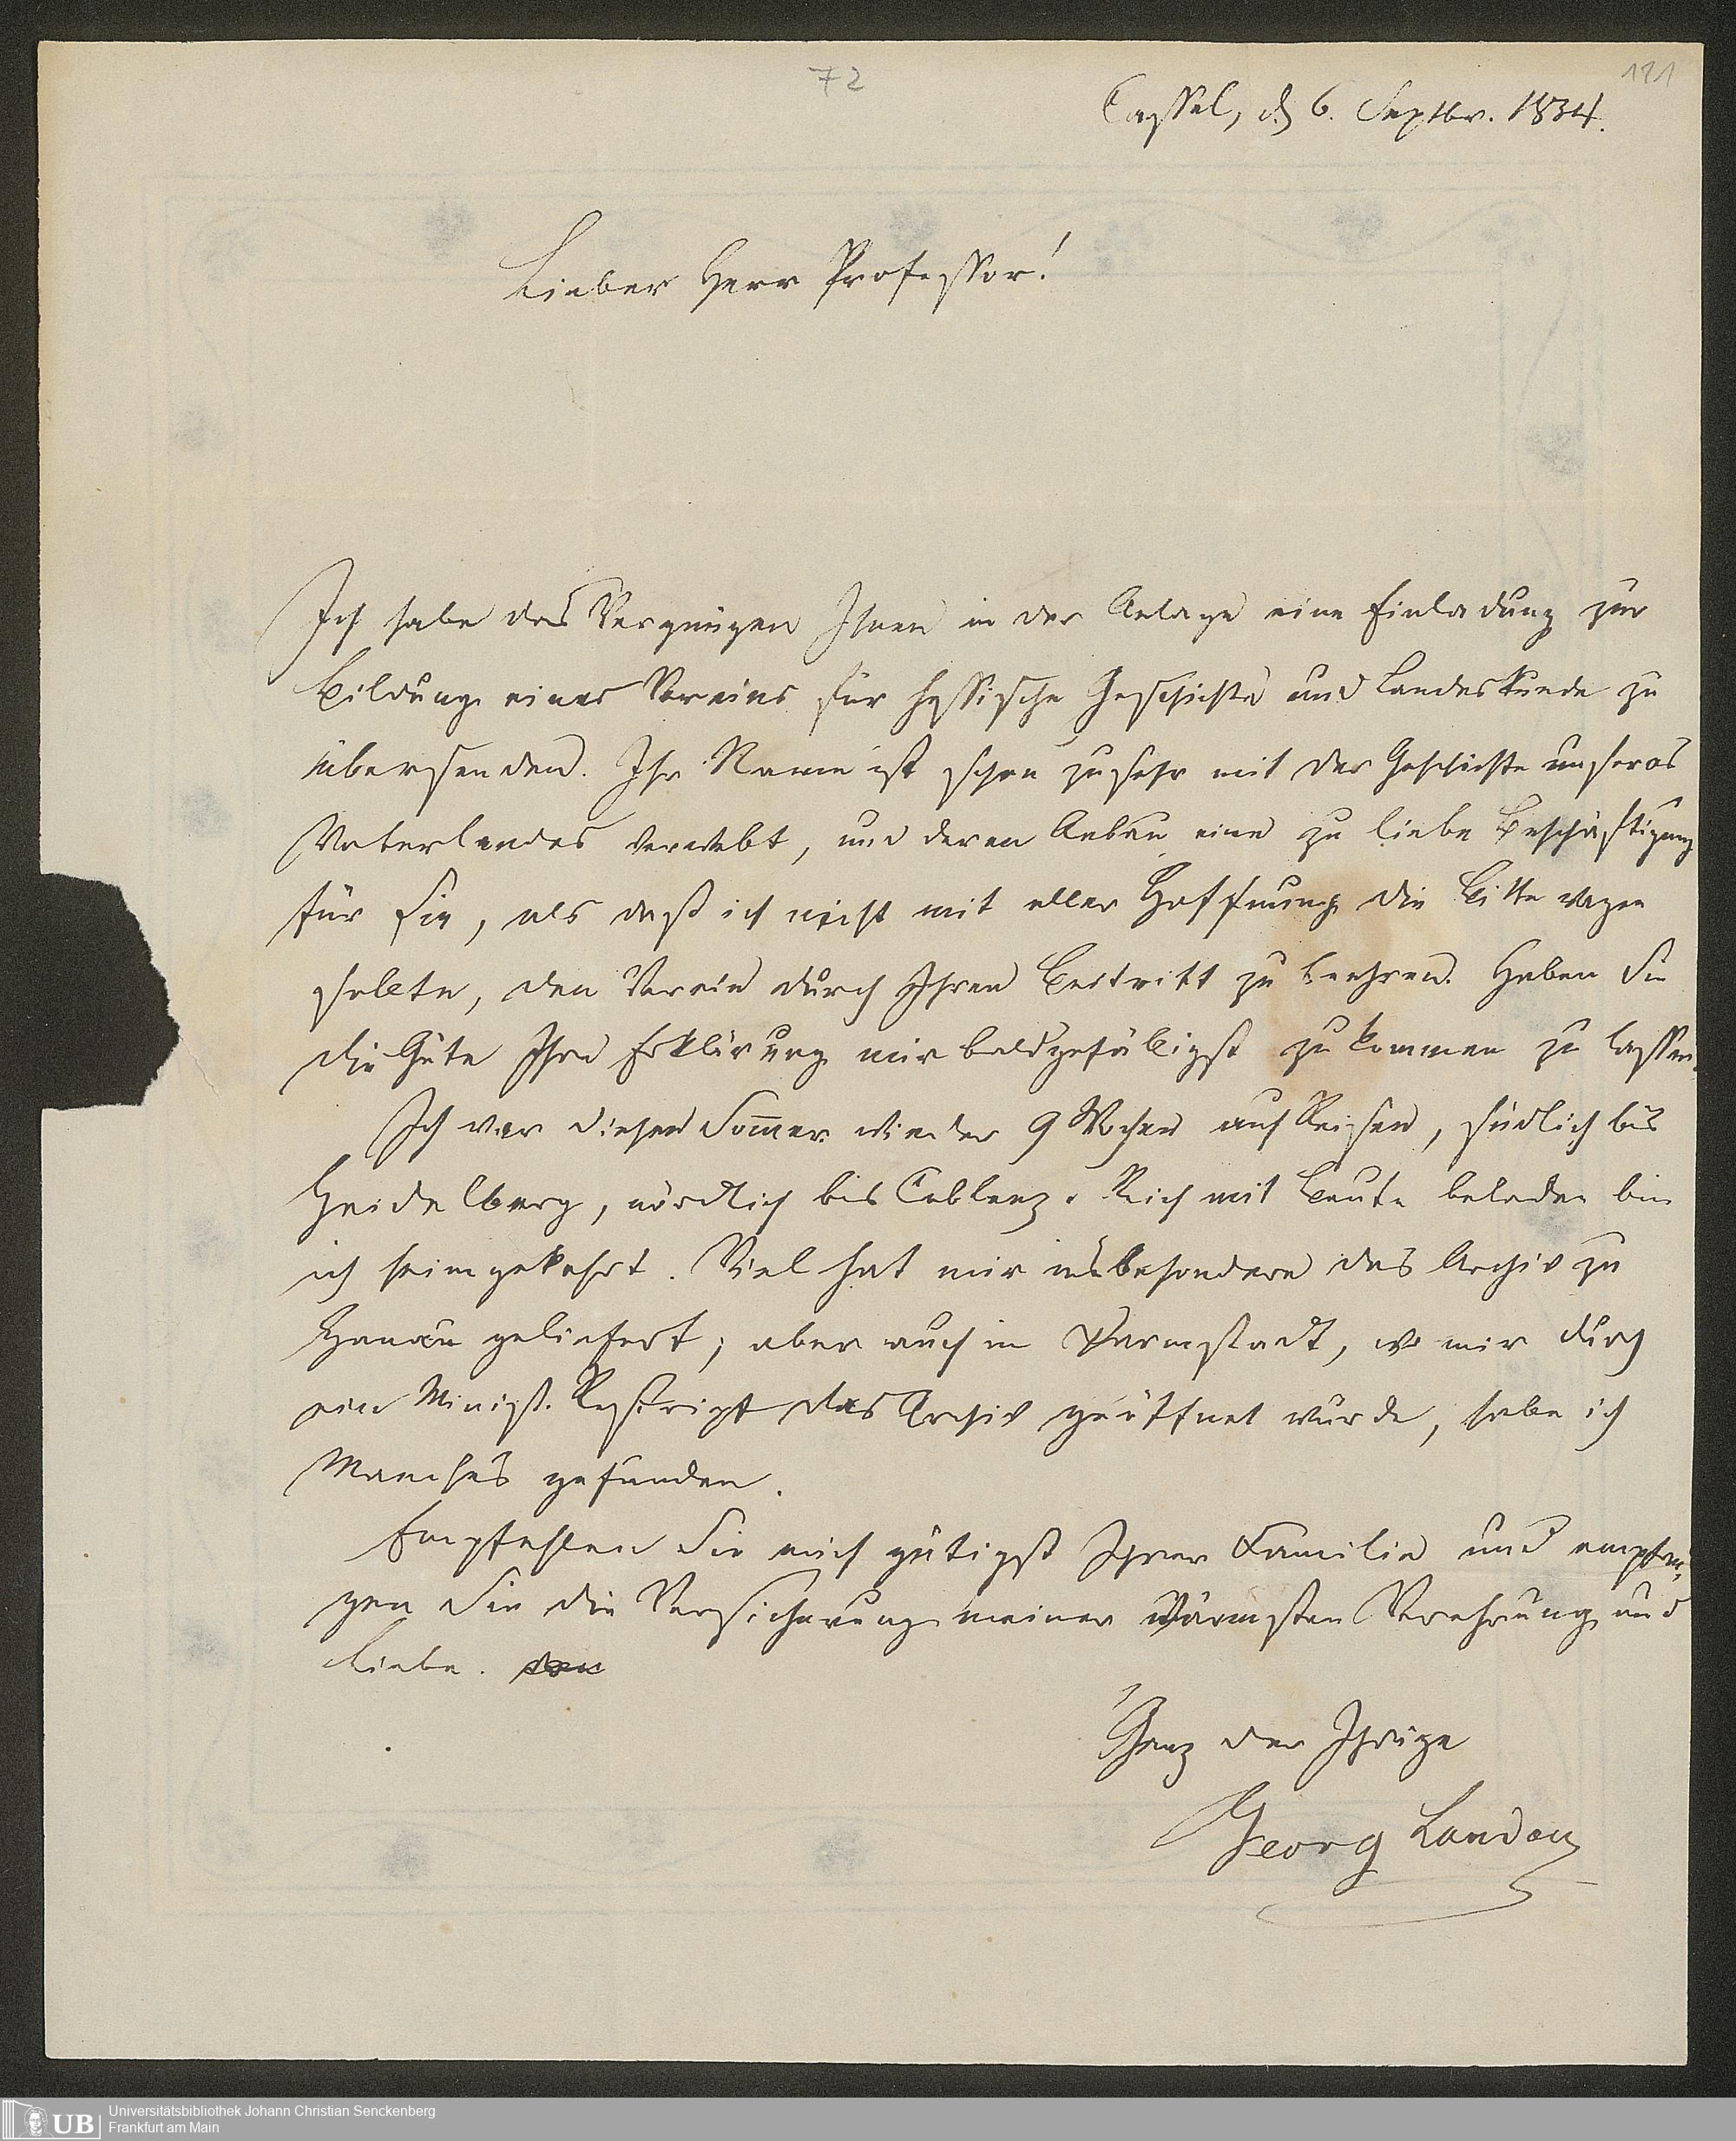 72
121
Cassel, d. 6. Septbr. 1834.
Lieber Herr Professor!
Ich habe das Vergnügen Ihnen in der Anlage eine Einladung zur
Bildung eines Vereins für hessische Geschichte und Landeskunde zu
übersenden. Ihr Name ist schon zu sehr mit der Geschichte unseres
Vaterlandes verwebt, und deren Anbau eine zu liebe Beschäftigung
für Sie, als daß ich nicht mit aller Hoffnung die Bitte wagen
sollte, den Verein durch Ihren Beitritt zu beehren. Haben Sie
die Güte Ihre Erklärung mir baldgefälligst zukommen zu lassen.
Ich war diesen Som̅er wieder 9 Wochen auf Reisen, südlich bis
Heidelberg, nördlich bis Coblenz. Reich mit Beute beladen bin
ich heimgekehrt. Viel hat mir insbesondere das Archiv zu
Hanau geliefert; aber auch in Darmstadt, wo mir durch
ein Minist. Rescript das Archiv geöffnet wurde, habe ich
Manches gefunden.
Empfehlen Sie mich gütigst Ihrer Familie und empfan-
gen Sie die Versicherung meiner wärmsten Verehrung und
Liebe.
Ganz der Ihrige
Georg Landau
UB
Universitätsbibliothek Johann Christian Senckenberg
Frankfurt am Main